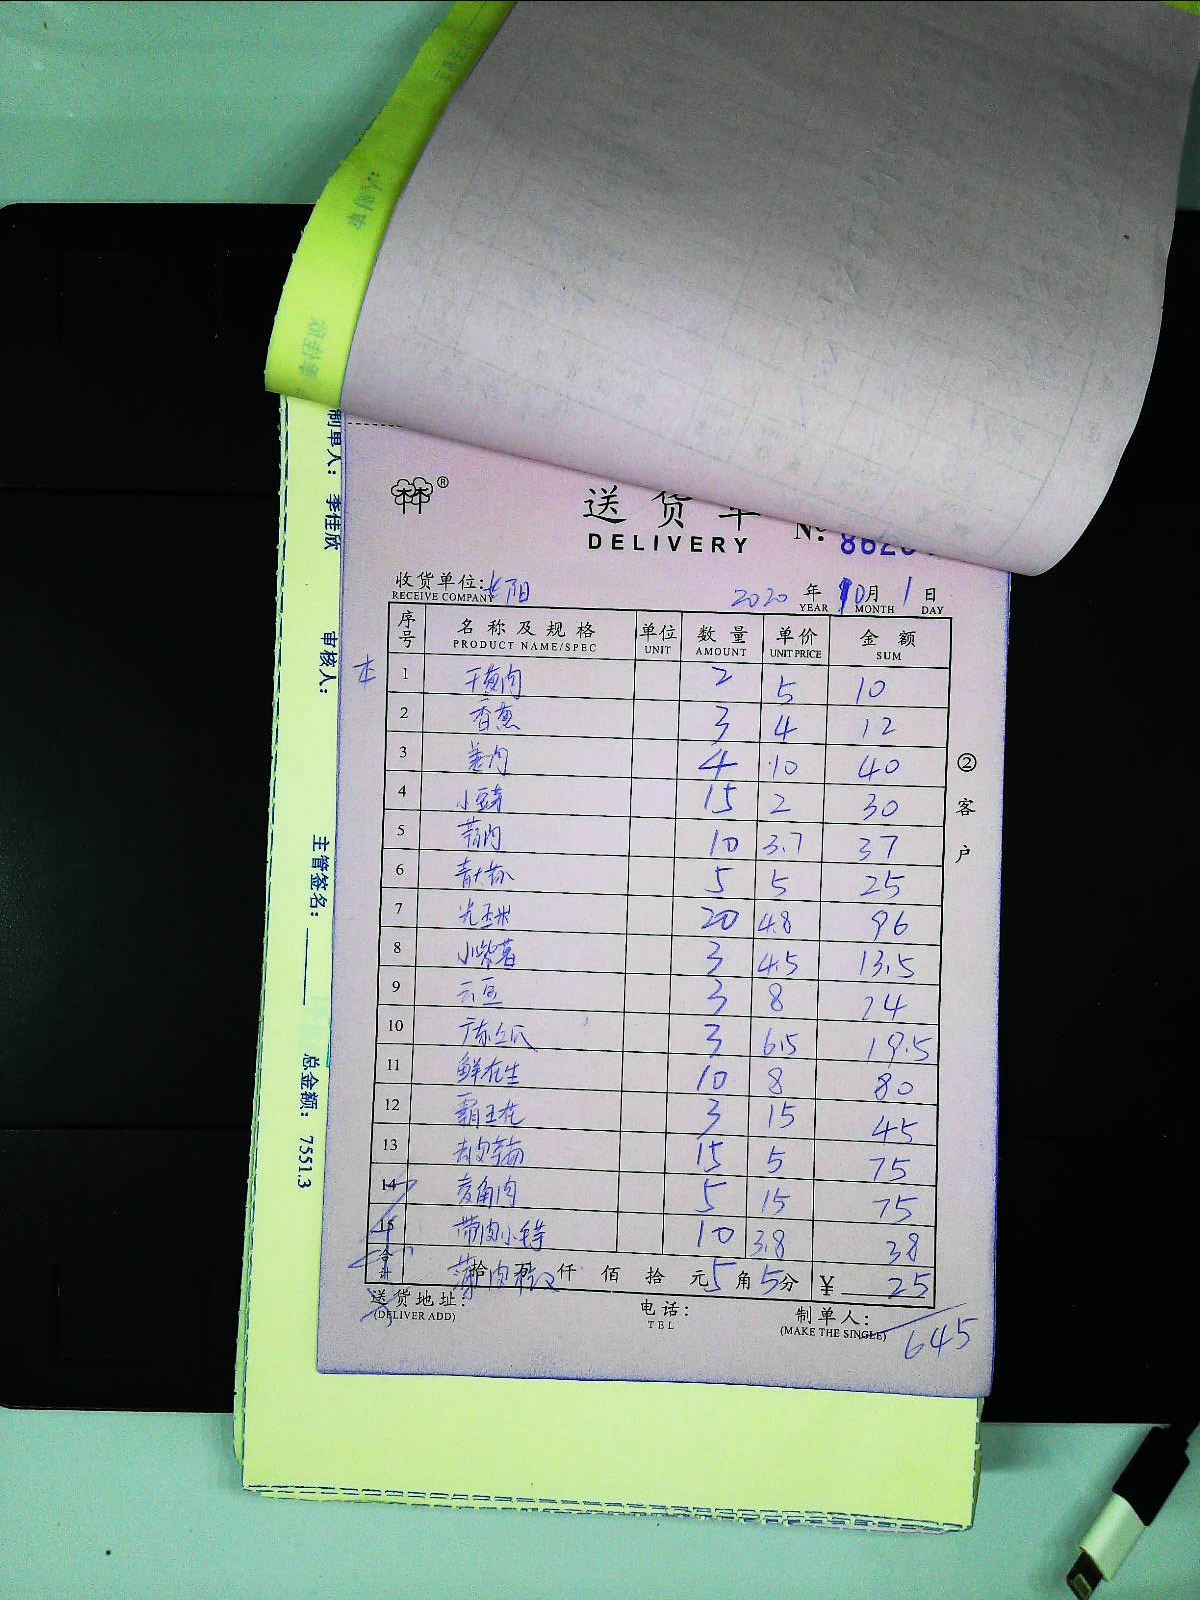 制单人： 李佳欣
审核人：
主管签名：
总金额： 7551.3
®
送货单
DELIVERY
Nº 862
收货单位:
RECEIVE COMPANY
2020 年 10月 1日
YEAR MONTH DAY
序号 名称及规格 单位 数量 单价 金额
PRODUCT NAME/SPEC UNIT AMOUNT UNIT PRICE SUM
1 2 5 10
2 香葱 3 4 12
3 姜肉 4 10 40
4 15 2 30
5 10 3.7 37
6 5 5 25
7 光玉米 20 4.8 96
8 小紫薯 3 4.5 13.5
9 云豆 3 8 24
10 3 6.5 19.5
11 鲜花生 10 8 80
12 霸王花 3 15 45
13 15 5 75
14 菱角肉 5 15 75
15 带皮小毛芋 10 3.8 38
合计 拾 万 仟 佰 拾 元 5 角 5 分 ¥ 25
送货地址:
(DELIVER ADD)
电话:
TEL
制单人:
(MAKE THE SINGLE)
645
②客户